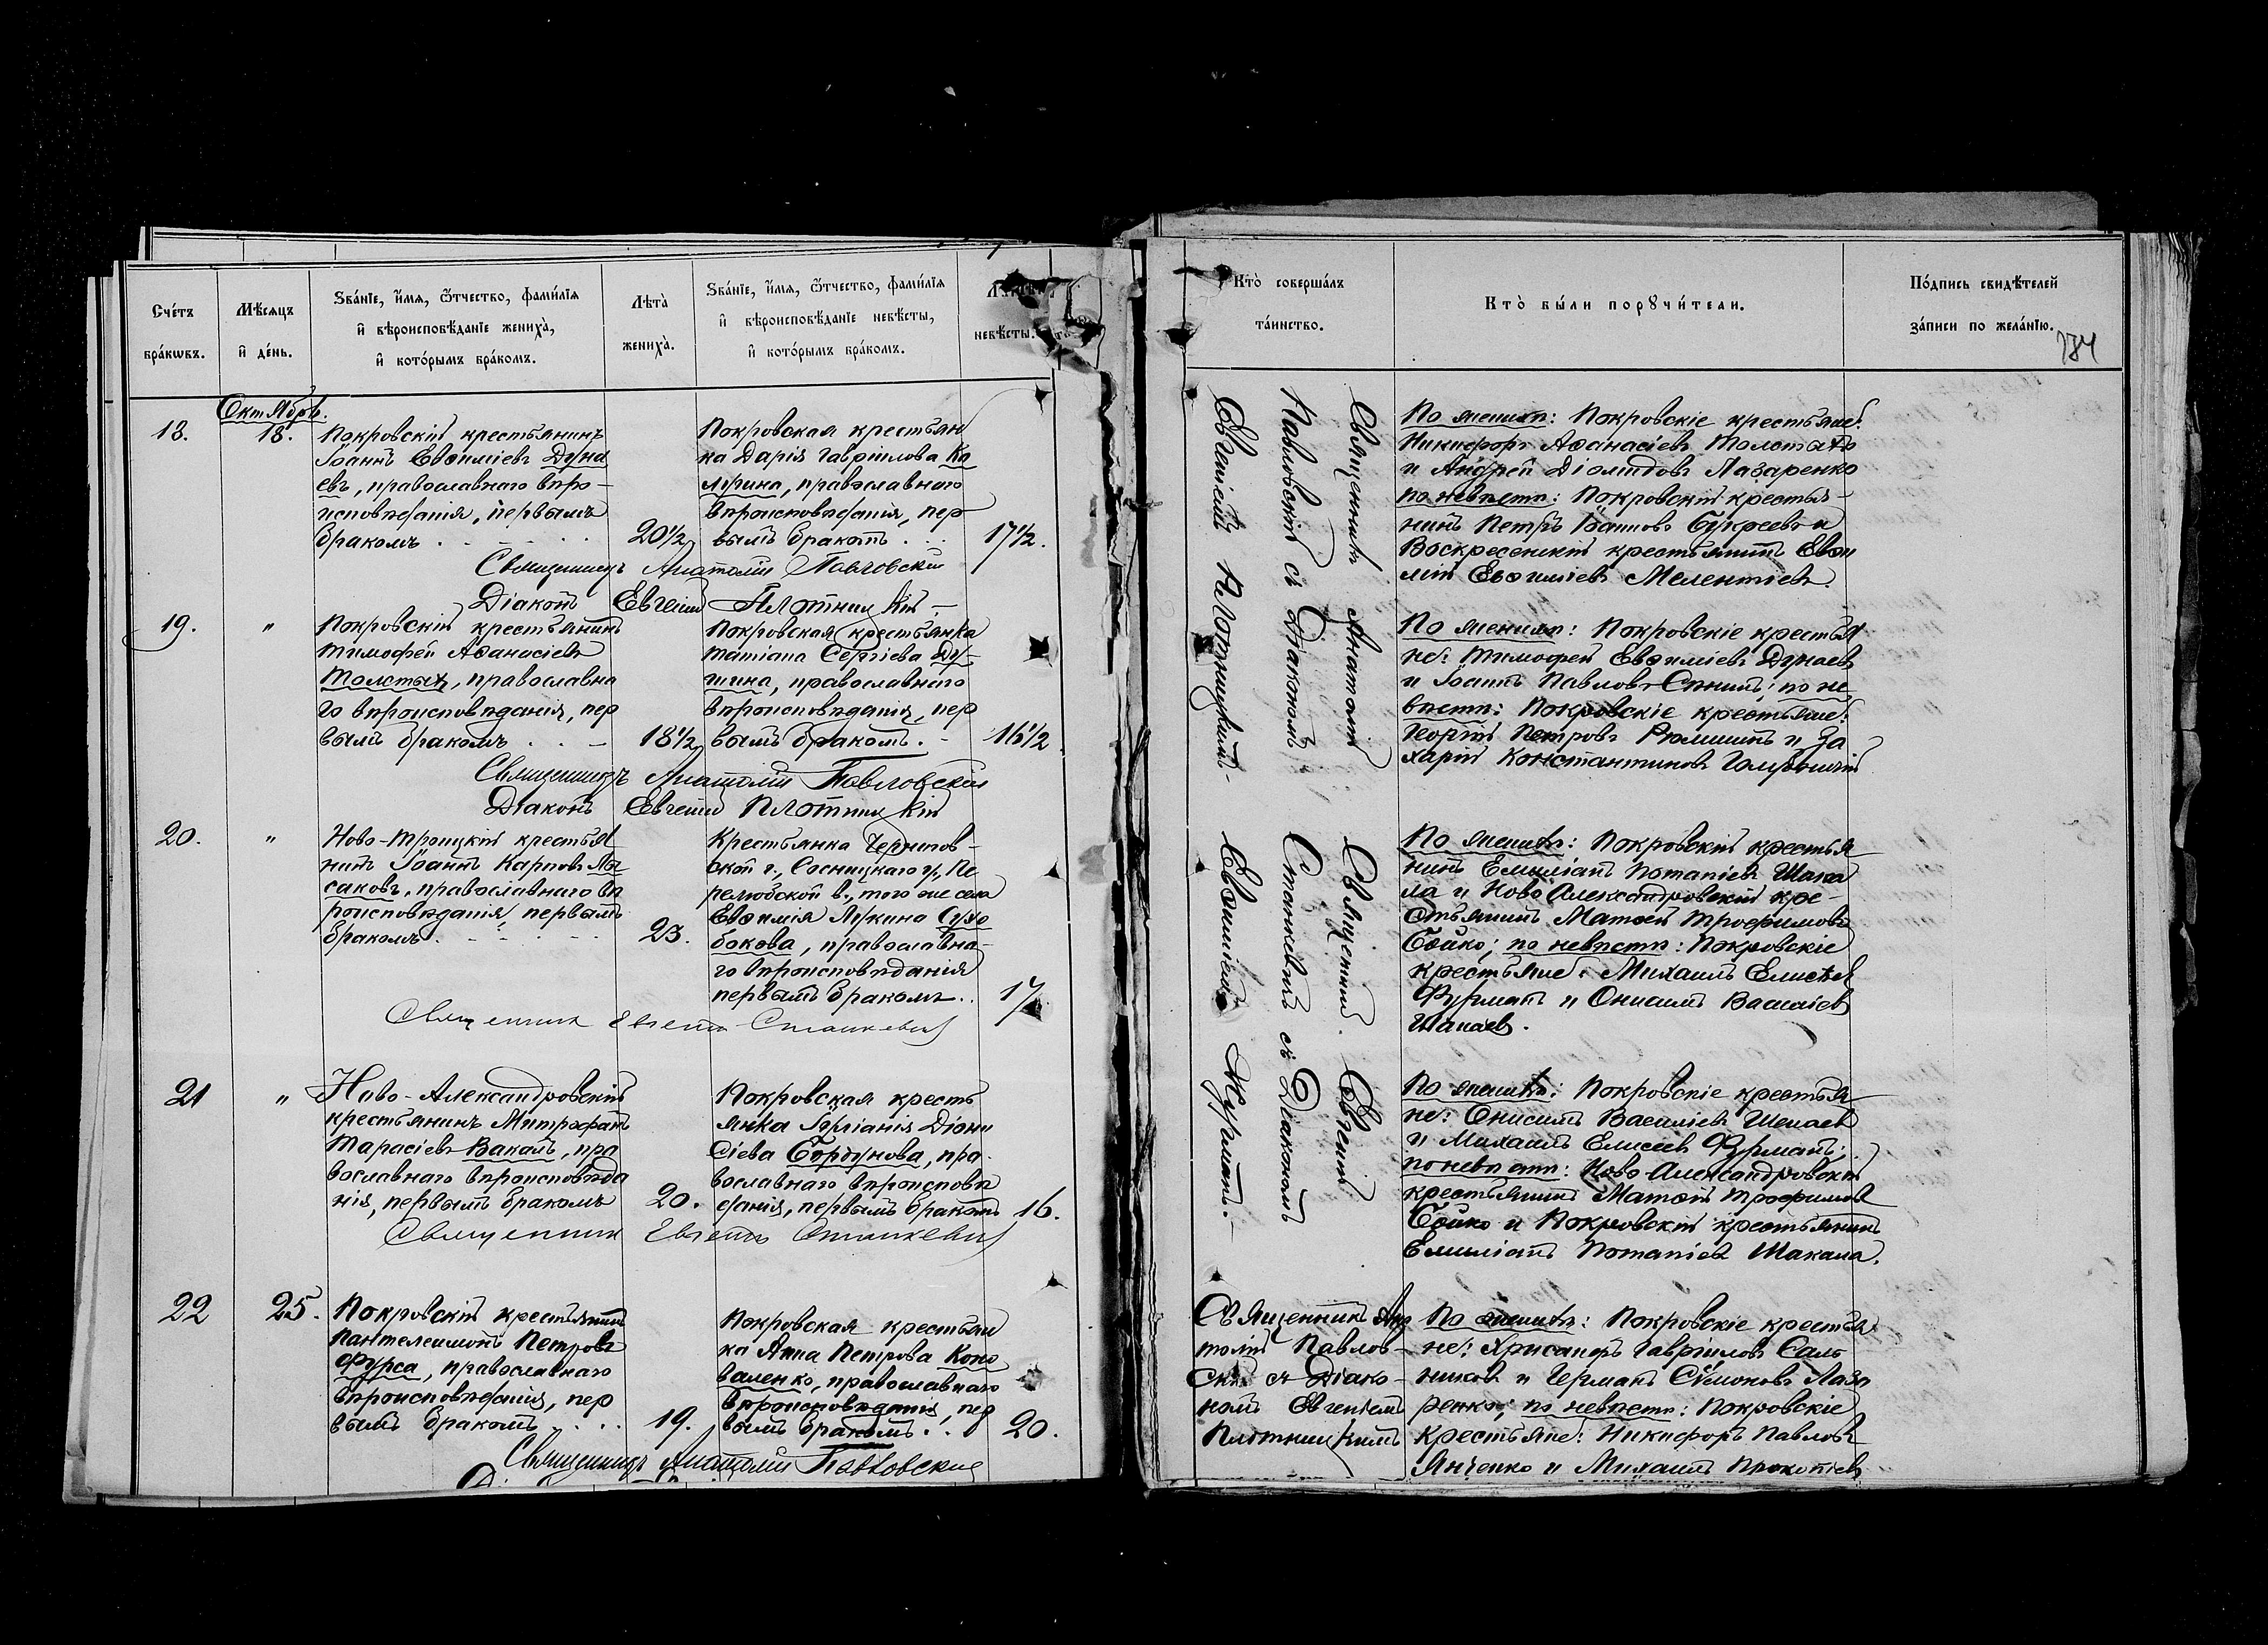 Счетъ бракѡвъ.
Мѣсяцъ и день.
Званіе, имя, ѿчество, фамилія
и вѣроисповѣданіе жениха,
и которымъ бракомъ.
Лѣта
жениха.
Званіе, имя, ѿчество, фамилія
и вѣроисповѣданіе невѣсты,
и которымъ бракомъ.
невѣсты.
Октябрь.
18.
18.
Покровскій крестьянинъ
Іоаннъ Евѳиміевъ Дуна
евъ, православнаго вѣро-
исповѣданія, первымъ
бракомъ
20½
Покровская крестьян
ка Дарія Гавріилова
православнаго
вѣроисповѣданія, пер
вымъ бракомъ
17½.
Священникъ Анатолій Павловскій
Діаконъ Евгеній Плотницкій
19.
"
Покровскій крестьянинъ
Тимофей Аѳанасіевъ
Толстыхъ, православна
го вѣроисповѣданія, пер
вымъ бракомъ
18½
Покровская крестьянка
Татіана Сергіева
православнаго
вѣроисповѣданія, пер
вымъ бракомъ.
16½
Священникъ Анатолій Павловскій
Діаконъ Евгеній Плотницкій
20.
"
Ново-Троицкій крестья
нинъ Іоаннъ Карповъ Ла
саковъ, православнаго вѣ
роисповѣданія, первымъ
бракомъ.
23.
Крестьянка Чернигов-
ской г., Сосницкаго у., Пе
релюбской в., того же села
Евѳимія Лукина Сухо
бокова, православна-
го вѣроисповѣданія
первымъ бракомъ..
17
Священникъ Евгеній Станкевичъ
21
"
Ново-Александровскій
крестьянинъ Митрофанъ
Тарасіевъ Вакалъ, пра
вославнаго вѣроисповѣда
нія, первымъ бракомъ
20.
Покровская кресть
янка Іуліанія Діони
сіева Борзунова, пра-
вославнаго вѣроисповѣ
данія, первымъ бракомъ
16.
Священникъ Евгеній Станкевичъ
22
25.
Покровскій крестьянинъ
Пантелеимонъ Петровъ
Фурса, православнаго
вѣроисповѣданія, пер
вымъ бракомъ
19.
Покровская крестьян
ка Анна Петрова Коно
валенко, православнаго
вѣроисповѣданія, пер
вымъ бракомъ..
20.
Священникъ Анатолій Павловскій
Кто совершалъ
таинство.
Кто были порꙋчители.
Подпись свидѣтелей
записи по желанію.
184
Священникъ Анатолій
Павловскій съ Діакономъ
Евгеніемъ Плотницкимъ
По женихѣ: Покровскіе крестьяне:
Никифоръ Аѳанасіевъ Толстыхъ
и Андрей Діомидовъ Лазаренко
по невѣстѣ: Покровскій крестья-
нинъ Петръ Іоанновъ Букреевъ и
Воскресенскій крестьянинъ Евѳи
мій Евѳиміевъ Мелентіевъ.
По женихѣ: Покровскіе крестья
не: Тимофей Евѳиміевъ Дунаевъ
и Іоаннъ Павловъ по не
вѣстѣ: Покровскіе крестьяне:
Георгій Петровъ Рюмшинъ и За
харій Константиновъ
Священникъ Евгеній
Станкевичъ съ Діакономъ
Евѳиміемъ
По женихѣ: Покровскій крестья
нинъ Емиліанъ Потапіевъ Шака
ла и Ново Александровскій кре-
стьянинъ Матѳей Трофимовъ
Бойко; по невѣстѣ: Покровскіе
крестьяне: Михаилъ Елисѣев
Фурманъ и Онисимъ Василіев
По женихѣ: Покровскіе крестья
не: Онисимъ Василіевъ
и Михаилъ Елисеев Фурманъ;
по невѣстѣ: Ново-Александровскій
крестьянинъ Матѳей Трофимов
Бойко и Покровскій крестьянинъ
Емиліанъ Потапіев Шакала.
Священникъ Ана
толій Павлов-
скій съ Діако-
номъ Евгеніемъ
Плотницкимъ
По женихѣ: Покровскіе крестья
не: Хрисанфъ Гавріиловъ Саль
никовъ и Германъ Сѵмеоновъ Лаза
ренко; по невѣстѣ: Покровскіе
крестьяне: Никифоръ Павловъ
Янченко и Михаилъ Прокопіевъ